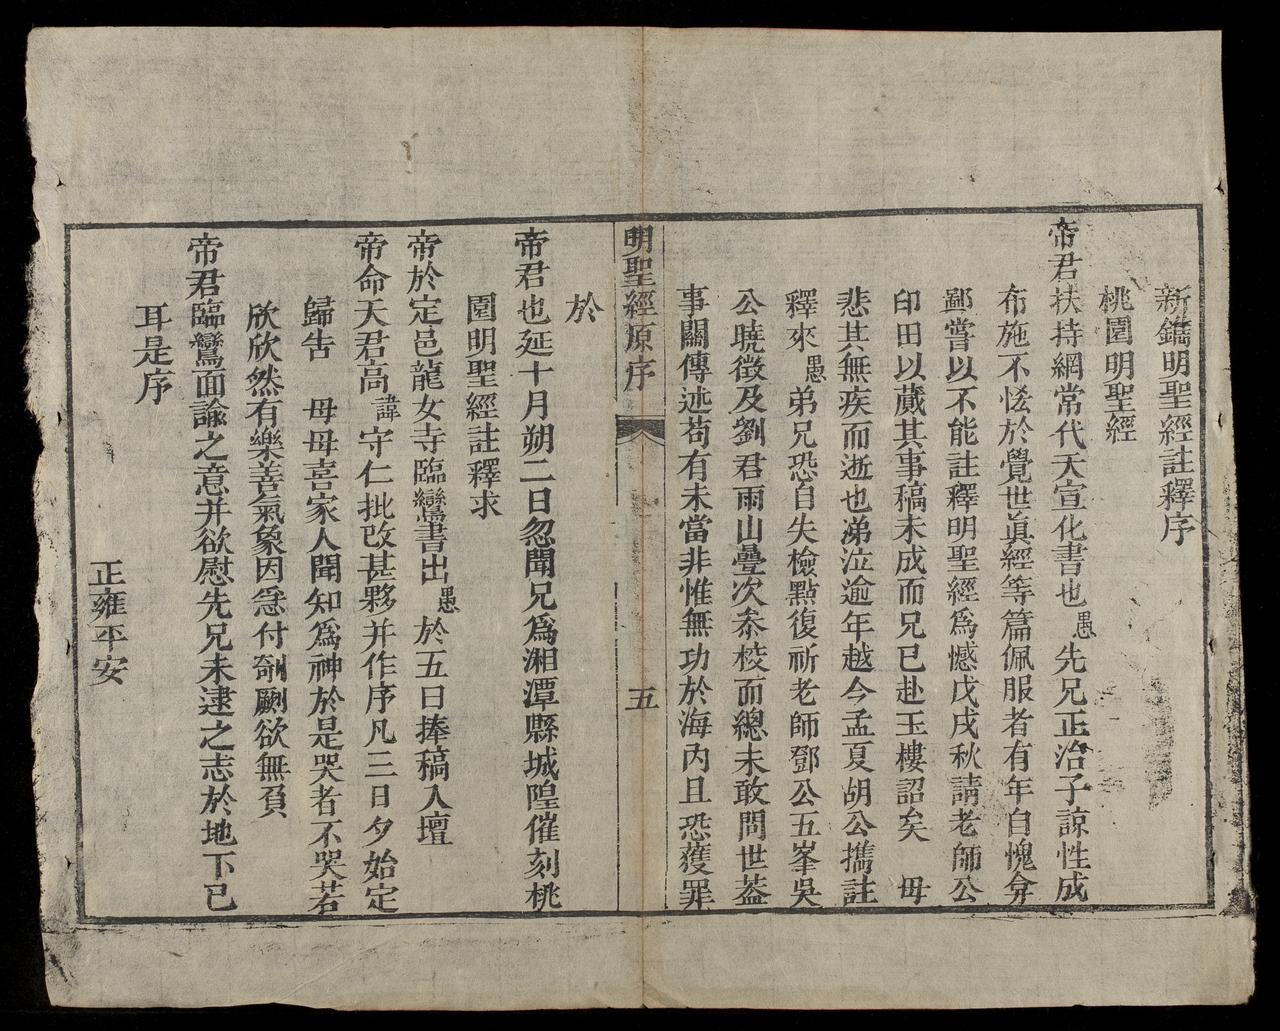 新鐫明聖經註釋序
桃園明聖經
帝君扶持綱常代天宣化書也愚先兄正治子諒性成
布施不恡於覺世眞經等篇佩服者有年自愧弇
鄙嘗以不能註釋明聖經爲憾戊戌秋請老師公
印田以蕆其事稿未成而兄已赴玉樓詔矣 母
悲其無疾而逝也涕泣逾年越今孟夏胡公攜註
釋來愚弟兄恐自失檢點復祈老師鄧公五峯吳
公曉徵及劉君雨山疊次叅校而總未敢問世葢
事關傳述苟有未當非惟無功於海內且恐獲罪
明聖經原序
五
於
帝君也延十月朔二日忽聞兄爲湘潭縣城隍催刻桃
園明聖經註釋求
帝於定邑龍女寺臨鸞書出愚於五日捧稿入壇
帝命天君高諱守仁批改甚夥并作序凡三日夕始定
歸告 母母喜家人聞知爲神於是哭者不哭若
欣欣然有樂善氣象因亟付剞劂欲無負
帝君臨鸞面諭之意并欲慰先兄未逮之志於地下已
耳是序
正雍平安